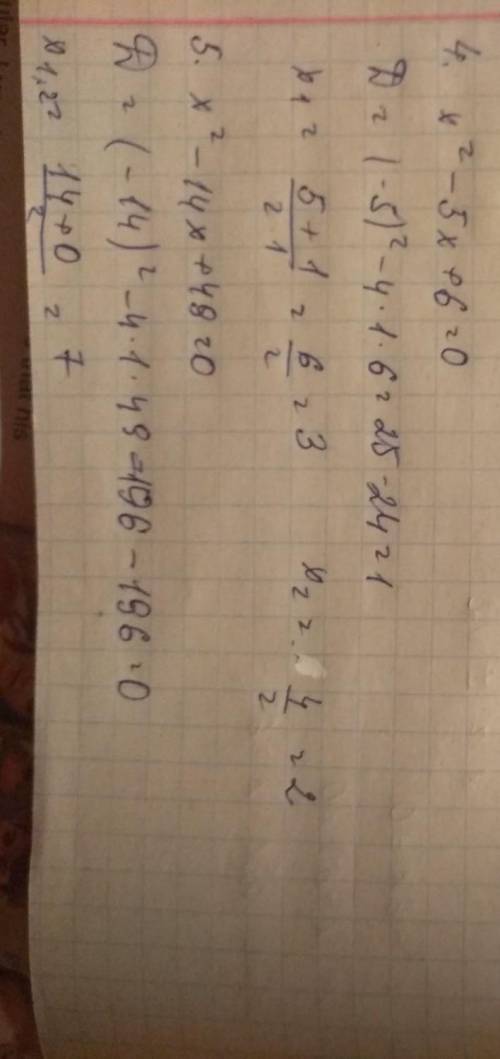 4. x² - 5x + 6 = 0
D = (-5)² - 4 · 1 · 6 = 25 - 24 = 1
x₁ = (5 + 1)/(2 · 1) = 6/2 = 3 x₂ = 4/2 = 2
5. x² - 14x + 49 = 0
D = (-14)² - 4 · 1 · 49 = 196 - 196 = 0
x₁,₂ = (14 + 0)/2 = 7